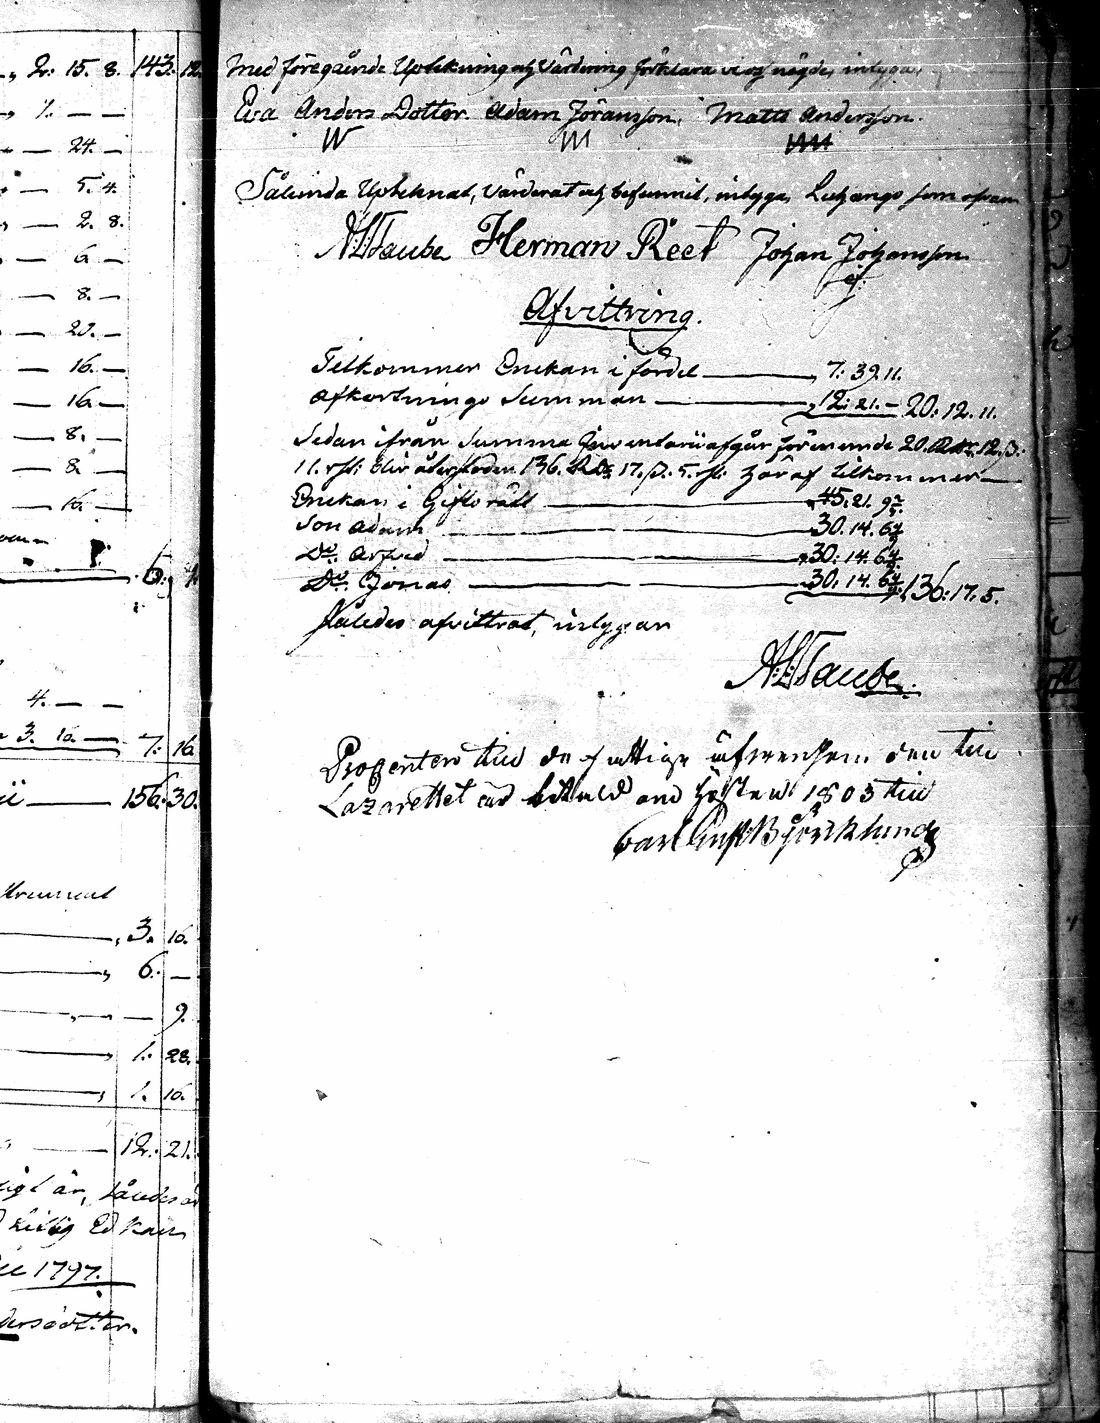 2. 15. 8. 143. 12.
1. — —
— 24. —
— 5. 4.
— 2. 8.
— 6. —
— 8. —
— 20. —
— 16. —
— 16. —
— 8. —
— 8. —
— 16. —
6.
4. — —
3. 16. — 7: 16.
156. 30.
3. 16.
6. —
9.
1. 28.
1. 16.
12. 21.
är, således
Ed kan
1797.
dersdotter.
Med föregående Upteckning och Värdering förklara vi oss nögde, intyga,
Eva Anders Dotter. Adam Jöransson. Matts Andersson.
Sålunda Upteknat, Värderat och befunnit, intyga, Lutzango som ofvan
A:L:Taube Herman Reet Johan Johansson
Afvittring.
Tilkommer Enckan i fördel — 7: 39. 11.
Afkortnings Summan — 12: 21. — 20: 12. 11.
Sedan ifrån Summa Inventarii afgår förenemde 20. Rdr. 12. ß.
11. rst: blir återstoden 136. Rdr 17. ß. 5. rst: häraf tilkommer —
Enckan i Giftorätt — 45. 21. 9
Son Adam — 30. 14. 6
Do. Arfved — 30. 14. 6
Do. Jonas — 30. 14. 6 136: 17. 5.
Således afvittrat, intygar
A:L:Taube.
Procenten till de fattige äfvensom den till
Lazarettet är betald om hösten 1803 till
Carl Gust: Björklund